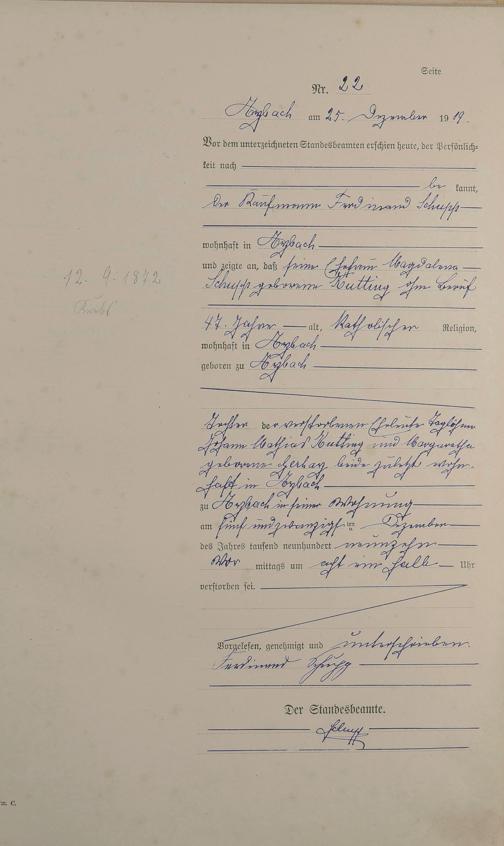 Seite
Nr. 22
Arzbach am 25. Dezember 1919.
Vor dem unterzeichneten Standesbeamten erschien heute, der Persönlich-
keit nach
be kannt,
der Kaufmann Ferdinand Schupp
wohnhaft in Arzbach
und zeigte an, daß seine Ehefrau Magdalena
12. 9. 1872
Schupp geborene Kutting ohne Beruf
47 Jahre alt, katholischer Religion,
wohnhaft in Arzbach
geboren zu Arzbach
Tochter der verstorbenen Eheleute Taglöhner
Johann Mathias Kutting und Margaretha
geborene beide zuletzt wohn-
haft in Arzbach
zu Arzbach in seiner Wohnung
am fünf und zwanzigsten Dezember
des Jahres tausend neunhundert neunzehn
Vor mittags um acht ein halb Uhr
verstorben sei.
Vorgelesen, genehmigt und unterschrieben.
Ferdinand Schupp
Der Standesbeamte.
Schupp